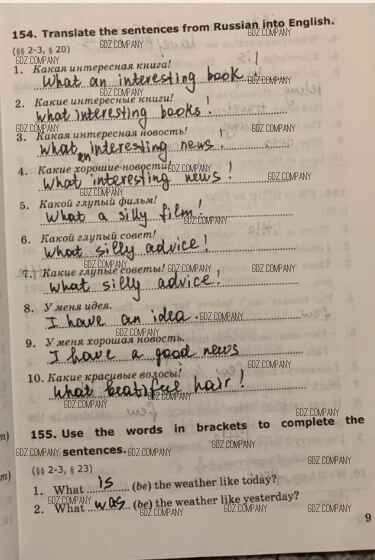 154. Translate the sentences from Russian into English.
(§§ 2-3, § 20)
GDZ.COMPANY
GDZ.COMPANY
GDZ.COMPANY
1. Какая интересная книга!
What an interesting book!
GDZ.COMPANY
GDZ.COMPANY
2. Какие интересные книги!
What interesting books!
GDZ.COMPANY
GDZ.COMPANY
3. Какая интересная новость!
What an interesting news!
4. Какие хорошие новости!
GDZ.COMPANY
What interesting news!
GDZ.COMPANY
GDZ.COMPANY
5. Какой глупый фильм!
What a silly film!
GDZ.COMPANY
6. Какой глупый совет!
What silly advice!
GDZ.COMPANY
7. Какие глупые советы!
GDZ.COMPANY
GDZ.COMPANY
What silly advice!
8. У меня идея.
I have an idea.
GDZ.COMPANY
GDZ.COMPANY
9. У меня хорошая новость.
I have a good news
GDZ.COMPANY
10. Какие красивые волосы!
What beatifful hair!
GDZ.COMPANY
GDZ.COMPANY
GDZ.COMPANY
155. Use the words in brackets to complete the
sentences.
GDZ.COMPANY
GDZ.COMPANY
GDZ.COMPANY
GDZ.COMPANY
(§§ 2-3, § 23)
1. What is (be) the weather like today?
GDZ.COMPANY
2. What was (be) the weather like yesterday?
GDZ.COMPANY
GDZ.COMPANY
GDZ.COMPANY
9